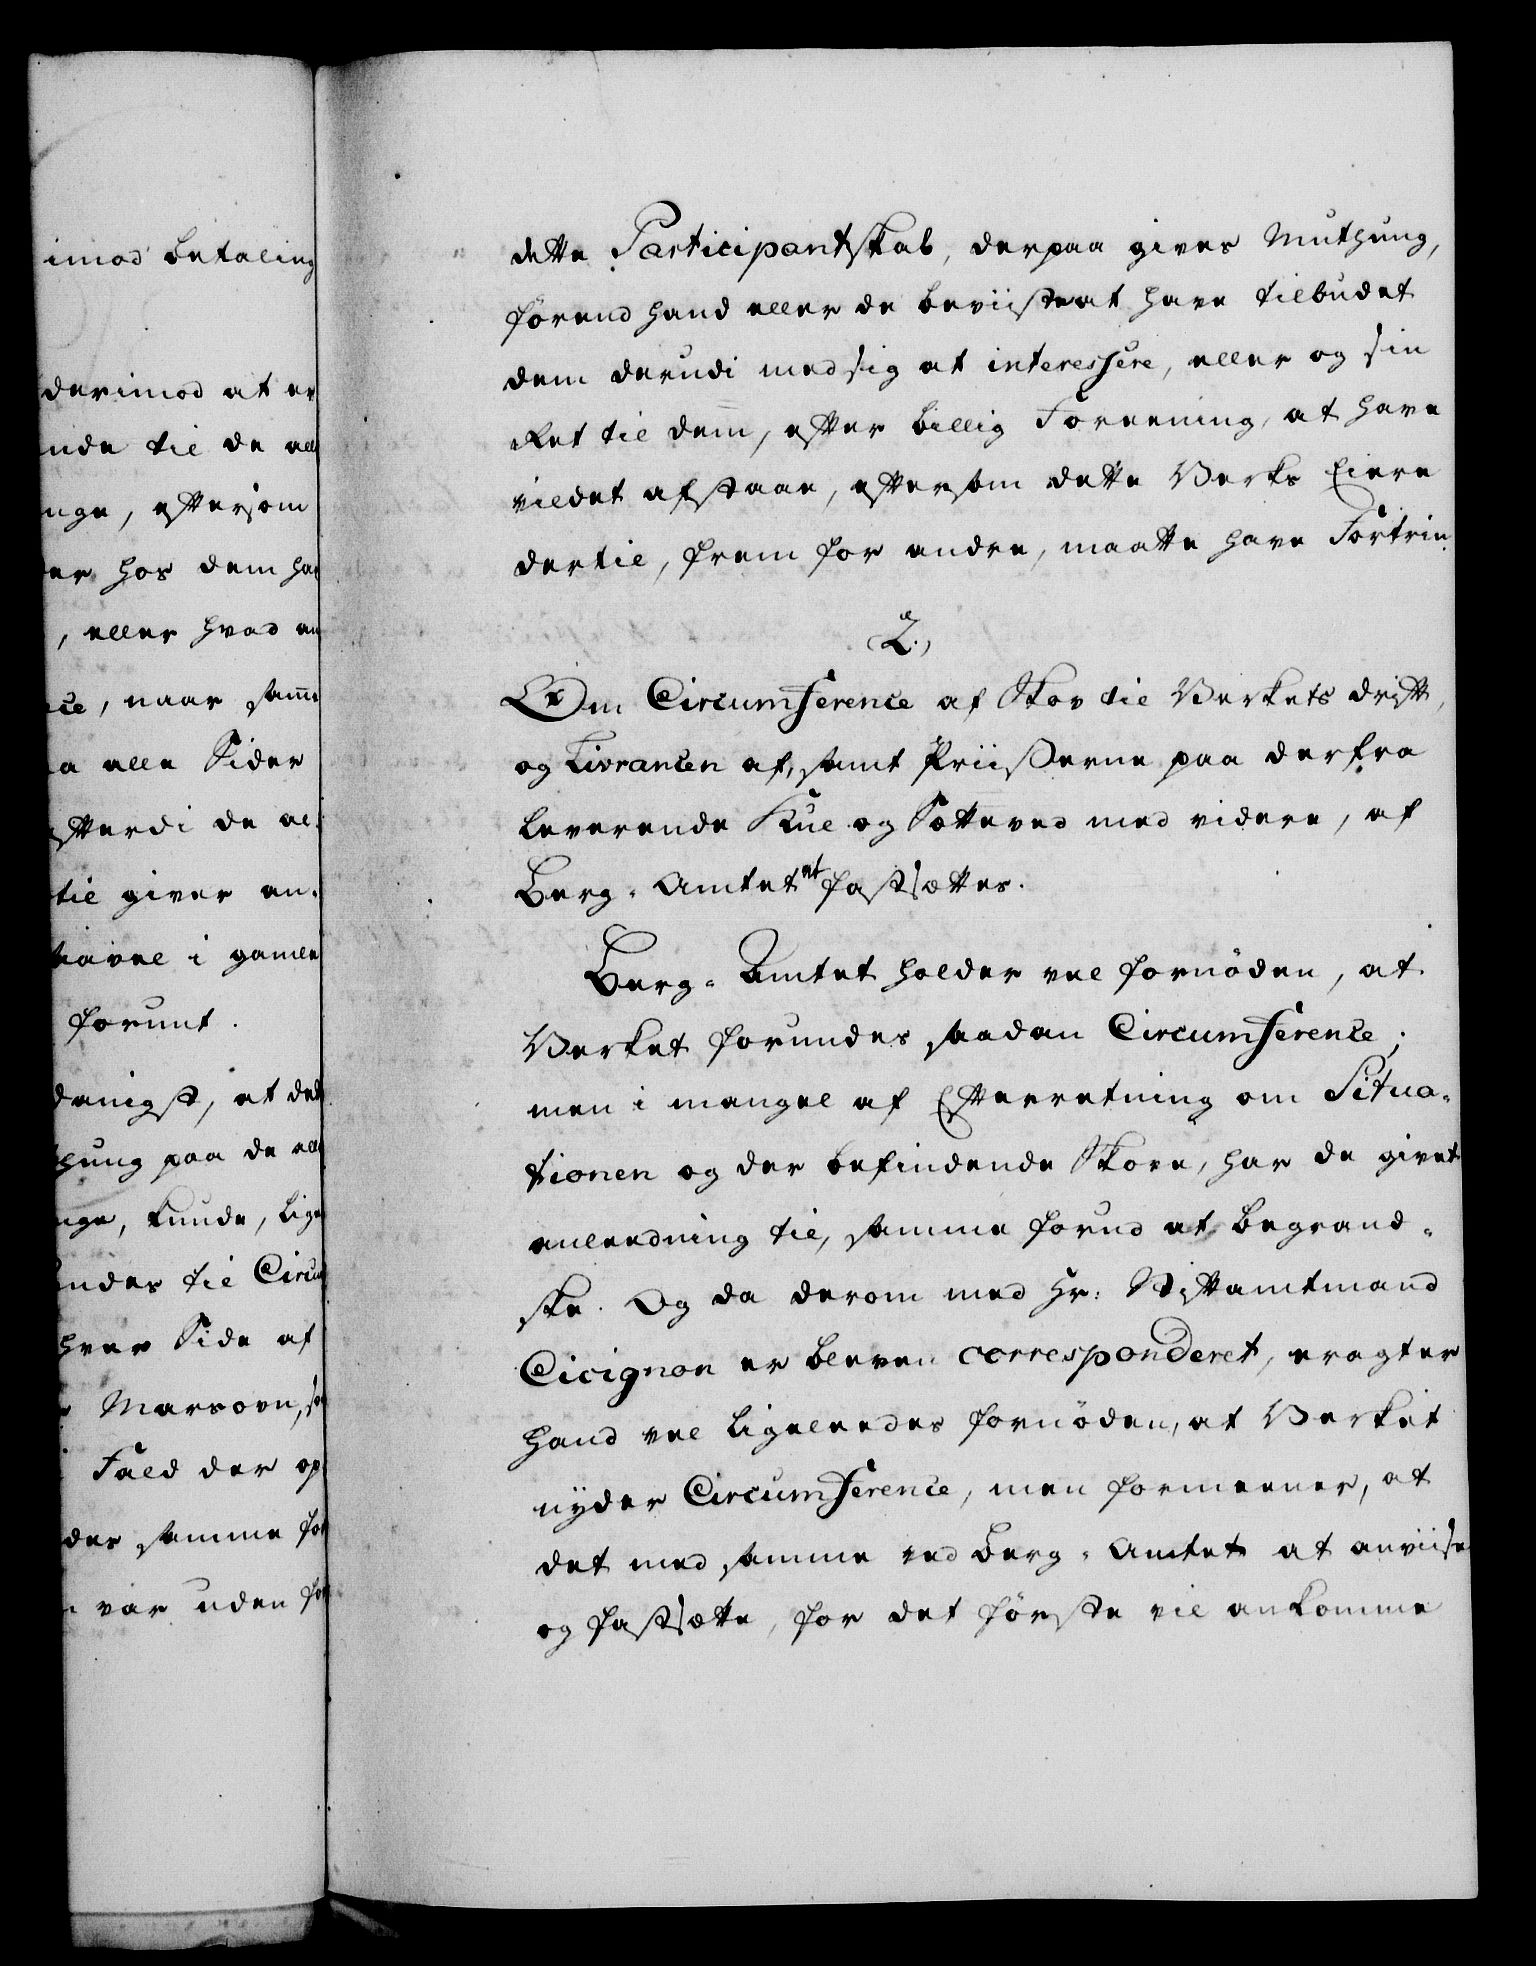 imod betaling
derimod at er
nde til de all
nge, eftersom
er hos dem ha
, eller hvad an
ce, naar samm
a alle Sider
efterdi de al-
til giver an-
i gamle
forunt.
danigst, at det
hung paa de all
nge, kunde, lige
ndes til Circu
hver Side af
Marsovn, so
Fald der op
der samme for
var uden for
dette Participantskab, derpaa gives Muthung,
førend hand eller de beviiste at have tilbudet
dem derudi med sig at interessere, eller og sin
Ret til dem, efter billig Foreening, at have
vildet afstaae, eftersom dette Verks Eiere
dertil, frem for andre, maatte have Fortrin.
2.)
Om Circumference af Skov til Verkets drift,
og Livrancen af, samt Priisserne paa derfra
leverende Kul og Sætteved med videre, af
Berg-Amtet at fastsættes.
Berg-Amtet holder vel fornöden, at
Verket forundes saadan Circumference;
men i mangel af Efterretning om Situa-
tionen og der befindende Skove, har de givet
anleedning til, samme forud at begrand-
ske. Og da derom med Hr: Stiftamtmand
Cicignon er bleven corresponderet, eragter
hand vel ligeleedes fornöden, at Verket
nyder Circumference, men formeener, at
det med samme ved Berg-Amtet at anviise
og fastsætte, for det første vil ankomme